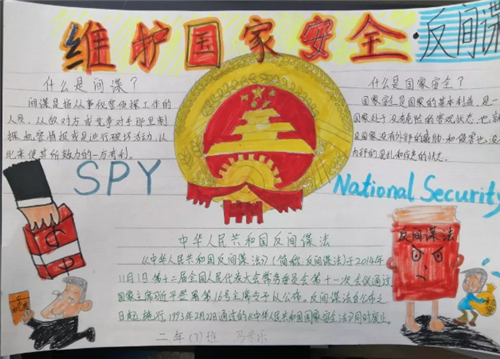 维护国家安全·反间谍
什么是间谍?
间谍是指从事秘密侦探工作的
人员,从敌对方或竞争对手那里刺
探机密情报或是进行破坏活动,以
此来使其所效力的一方有利。
SPY
什么是国家安全?
国家安全是国家的基本利益,是一
国家处于没有危险的客观状态,也就
National Security
中华人民共和国反间谍法
《中华人民共和国反间谍法》(简称《反间谍法》)于2014年
11月1日第十二届全国人民代表大会常务委员会第十一次会议通过
国家主席习近平签署第16号主席令予以公布。反间谍法自公布之
日起施行,1993年2月22日通过的《中华人民共和国国家安全法》同时废止。
反间谍法
二年(7)班